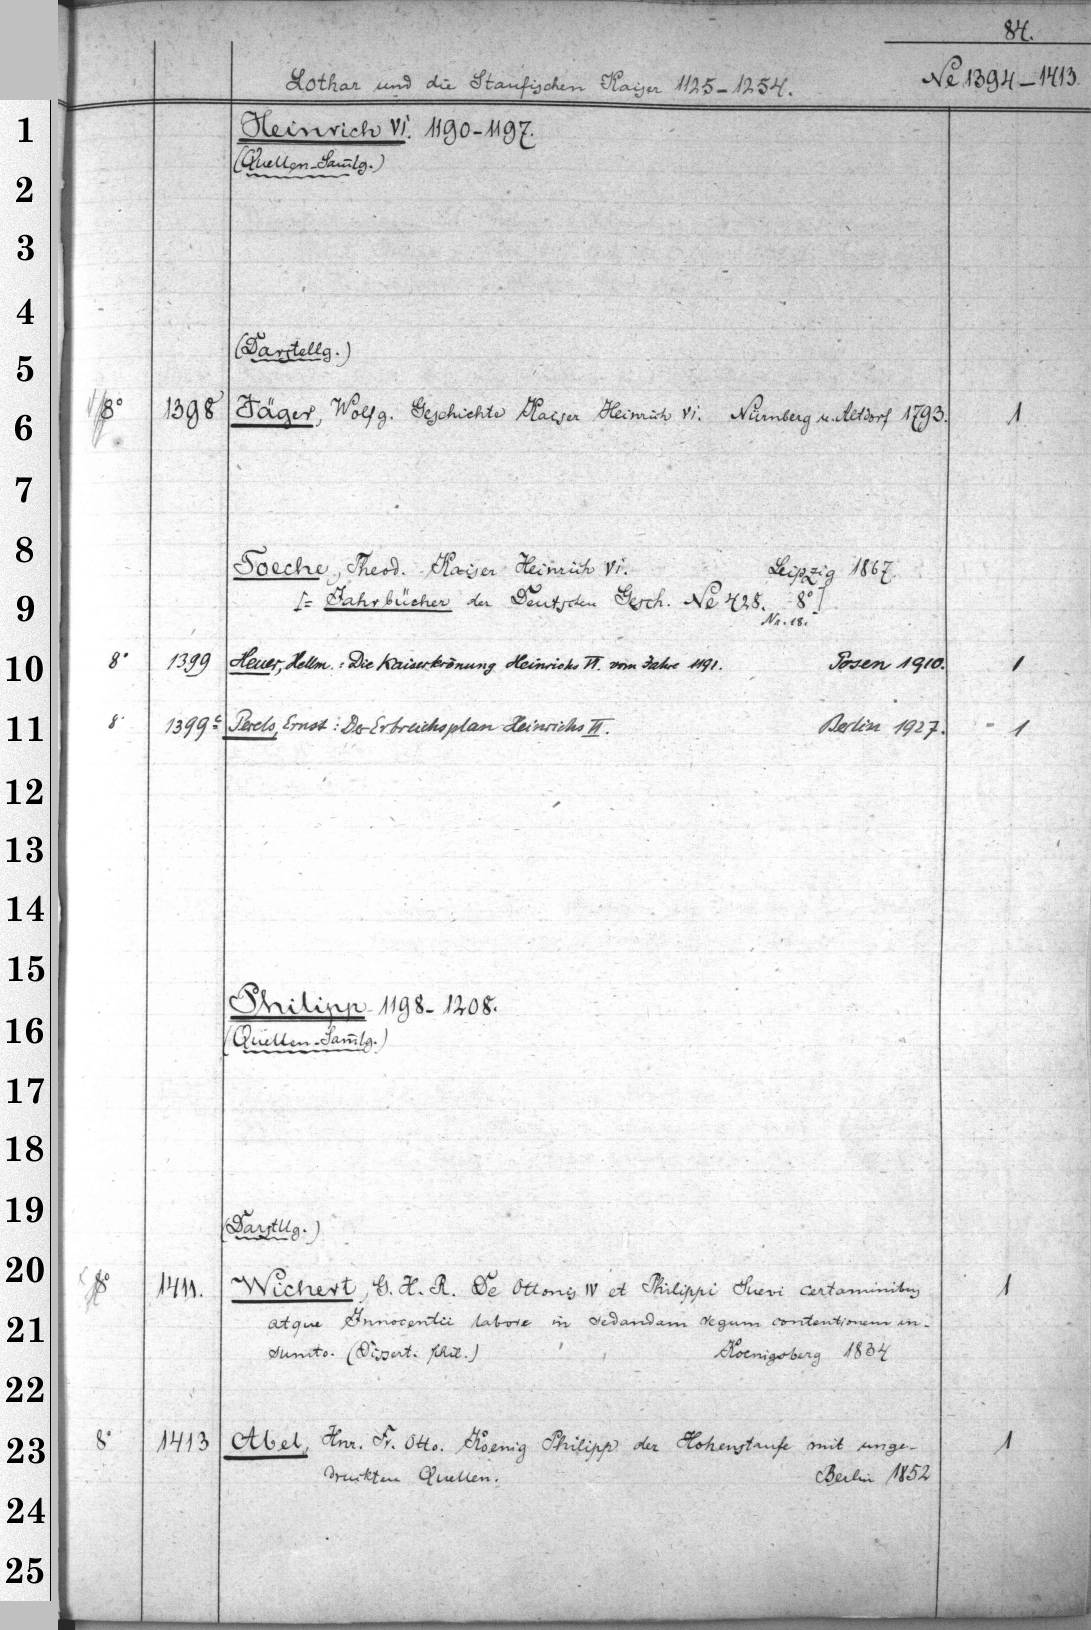 84.
Lothar und die Staufischen Kaiser 1125-1254. № 1394-1413
1 Heinrich VI. 1190-1197.
(Quellen-Sam̄lg.)
2
3
4
(Darstellg.)
5
8° 1398 Jäger, Wolfg. Geschichte Kaiser Heinrich VI. Nürnberg u. Altdorf 1793. 1
6
7
8
Toeche, Theod. Kaiser Heinrich VI. Leipzig 1867.
9 [= Jahrbücher der Deutschen Gesch. № 428. 8°]
Nr. 18.
10 8° 1399 Heuer, Hellm.: Die Kaiserkrönung Heinrichs VI. vom Jahre 1191. Posen 1910. 1
11 8° 1399c Perels, Ernst: Der Erbreichsplan Heinrichs VI. Berlin 1927. 1
12
13
14
15
Philipp 1198-1208.
16 (Quellen-Sam̄lg.)
17
18
19
(Darstllg.)
20
8° 1411. Wichert, G. H. R. De Ottonis IV et Philippi Suevi certaminibus 1
21 atque Innocentii labore in sedandam regum contentionem in-
sumto. (Dissert. phil.) Koenigsberg 1834
22
23 8° 1413 Abel, Hnr. Fr. Otto. Koenig Philipp der Hohenstaufe mit unge- 1
druckten Quellen. Berlin 1852
24
25